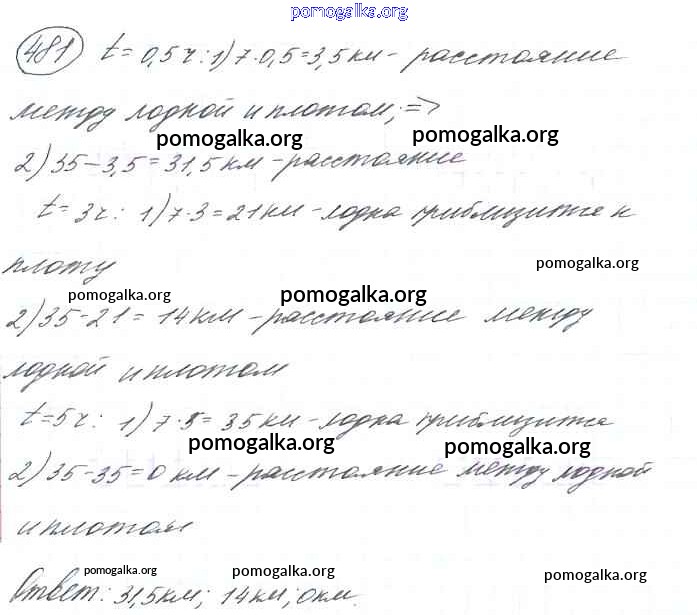 pomogalka.org
481 t = 0,5 ч : 1) 7·0,5 = 3,5 км - расстояние
между лодкой и плотом; =>
pomogalka.org pomogalka.org
2) 35 - 3,5 = 31,5 км - расстояние
t = 3ч : 1) 7·3 = 21 км - лодка приблизится к
плоту
pomogalka.org
pomogalka.org pomogalka.org
2) 35 - 21 = 14 км - расстояние между
лодкой и плотом
t = 5ч : 1) 7·5 = 35 км - лодка приблизится
pomogalka.org pomogalka.org
2) 35 - 35 = 0 км - расстояние между лодкой
и плотом
pomogalka.org pomogalka.org pomogalka.org
Ответ: 31,5 км; 14 км; 0 км.